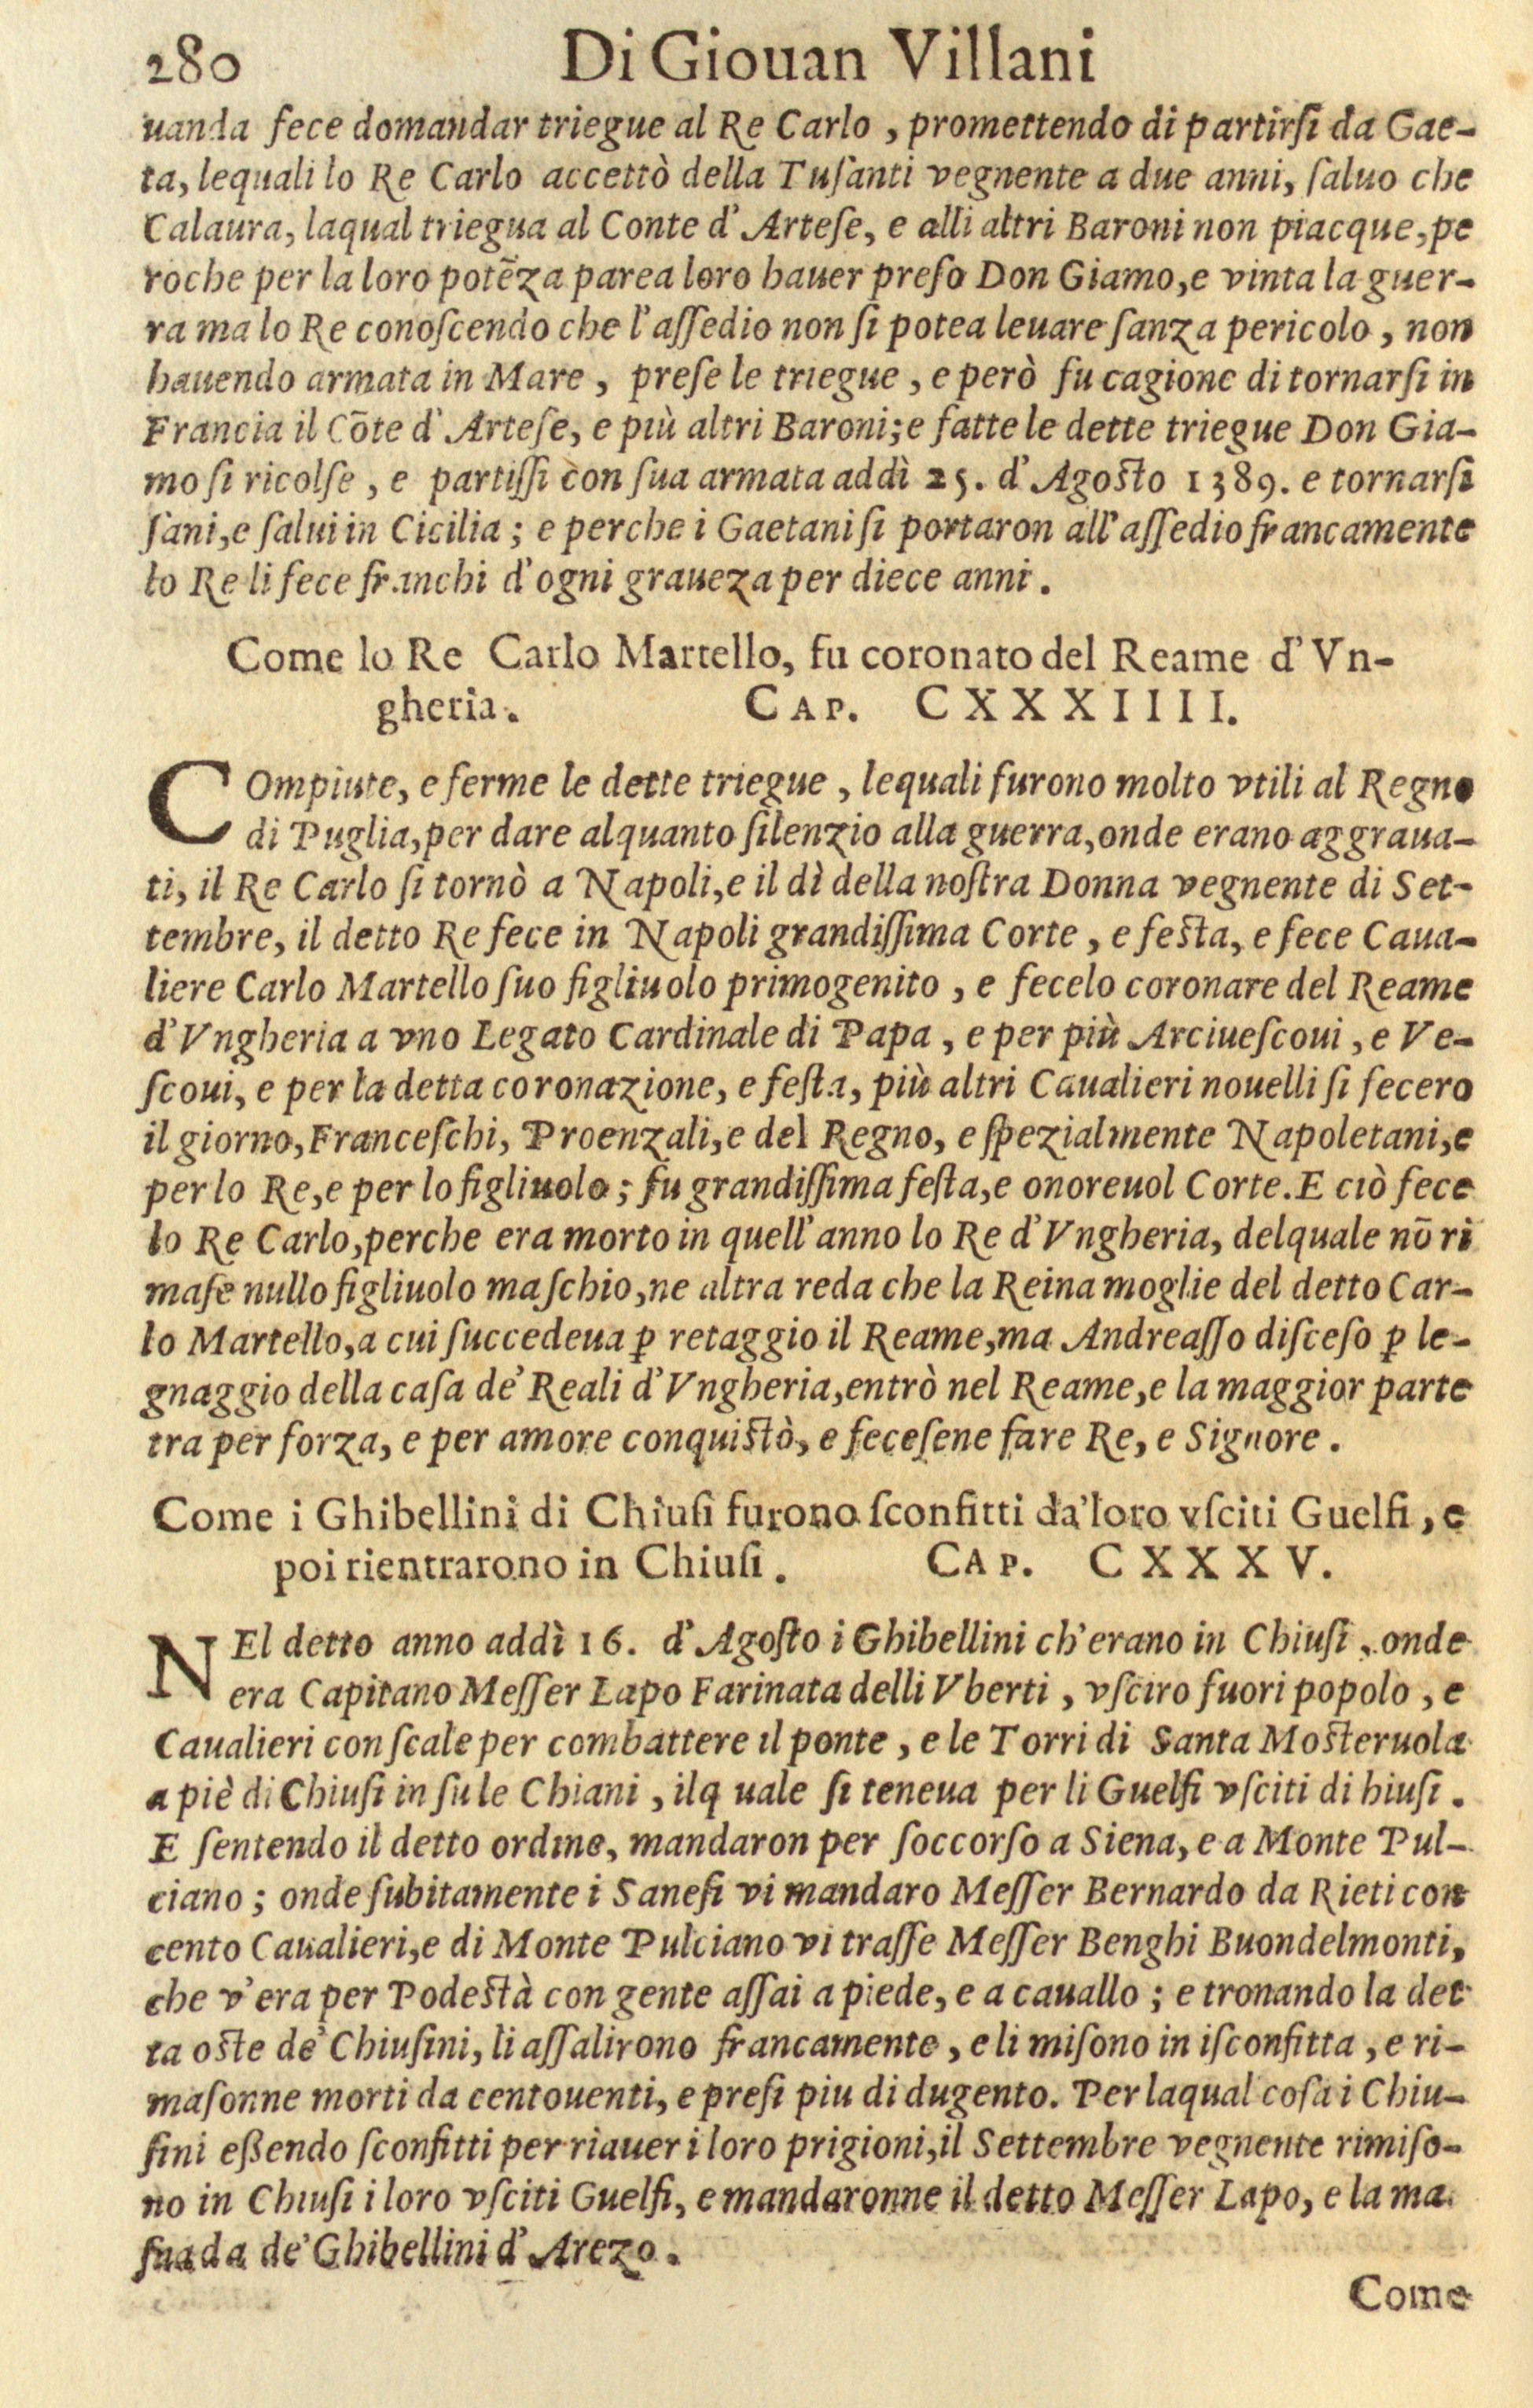 280 Di Giouan Villani
uanda fece domandar triegue al Re Carlo , promettendo di partirſi da Gae-
ta, lequali lo Re Carlo accettò della Tuſanti vegnente a due anni, ſaluo che
Calaura, laqual triegua al Conte d' Arteſe, e alli altri Baroni non piacque, pe
roche per la loro potẽza parea loro hauer preſo Don Giamo, e vinta la guer-
ra ma lo Re conoſcendo che l'aſſedio non ſi potea leuare ſanza pericolo , non
hauendo armata in Mare , preſe le triegue , e però fu cagione di tornarſi in
Francia il Cõte d' Arteſe, e più altri Baroni; e fatte le dette triegue Don Gia-
mo ſi ricolſe , e partiſſi con ſua armata addì 25. d' Agoſto 1389. e tornarſi
ſani, e ſalui in Cicilia ; e perche i Gaetani ſi portaron all'aſſedio francamente
lo Re li fece franchi d'ogni graueza per diece anni .
Come lo Re Carlo Martello, fu coronato del Reame d'Vn-
gheria. CAP. CXXXIIII.
COmpiute, e ferme le dette triegue , lequali furono molto vtili al Regno
di Puglia, per dare alquanto ſilenzio alla guerra, onde erano aggraua-
ti, il Re Carlo ſi tornò a Napoli, e il dì della noſtra Donna vegnente di Set-
tembre, il detto Re fece in Napoli grandiſſima Corte , e feſta, e fece Caua-
liere Carlo Martello ſuo figliuolo primogenito , e fecelo coronare del Reame
d'Vngheria a vno Legato Cardinale di Papa , e per più Arciueſcoui , e Ve-
ſcoui, e per la detta coronazione, e feſta, più altri Caualieri nouelli ſi fecero
il giorno, Franceſchi, Proenzali, e del Regno, e ſpezialmente Napoletani, e
per lo Re, e per lo figliuolo ; fu grandiſſima feſta, e onoreuol Corte. E ciò fece
lo Re Carlo, perche era morto in quell'anno lo Re d'Vngheria, delquale nõ ri
maſe nullo figliuolo maſchio, ne altra reda che la Reina moglie del detto Car-
lo Martello, a cui ſuccedeua ꝑ retaggio il Reame, ma Andreaſſo diſceſo ꝑ le-
gnaggio della caſa de' Reali d'Vngheria, entrò nel Reame, e la maggior parte
tra per forza, e per amore conquiſtò, e feceſene fare Re, e Signore .
Come i Ghibellini di Chiuſi furono ſconfitti da'loro vſciti Guelfi , e
poi rientrarono in Chiuſi . CAP. CXXXV.
NEl detto anno addì 16. d' Agoſto i Ghibellini ch'erano in Chiuſi , onde
era Capitano Meſſer Lapo Farinata delli Vberti , vſciro fuori popolo , e
Caualieri con ſcale per combattere il ponte , e le Torri di Santa Moſteruola
a piè di Chiuſi in ſu le Chiani , ilq uale ſi teneua per li Guelfi vſciti di hiuſi .
E ſentendo il detto ordine, mandaron per ſoccorſo a Siena, e a Monte Pul-
ciano ; onde ſubitamente i Saneſi vi mandaro Meſſer Bernardo da Rieti con
cento Caualieri, e di Monte Pulciano vi traſſe Meſſer Benghi Buondelmonti,
che v'era per Podeſtà con gente aſſai a piede, e a cauallo ; e tronando la det
ta oſte de' Chiuſini, li aſſalirono francamente , e li miſono in iſconfitta , e ri-
maſonne morti da centouenti, e preſi piu di dugento. Per laqual coſa i Chiu-
ſini eßendo ſconfitti per riauer i loro prigioni, il Settembre vegnente rimiſo-
no in Chiuſi i loro vſciti Guelfi, e mandaronne il detto Meſſer Lapo, e la ma
ſnada de' Ghibellini d' Arezo .
Come